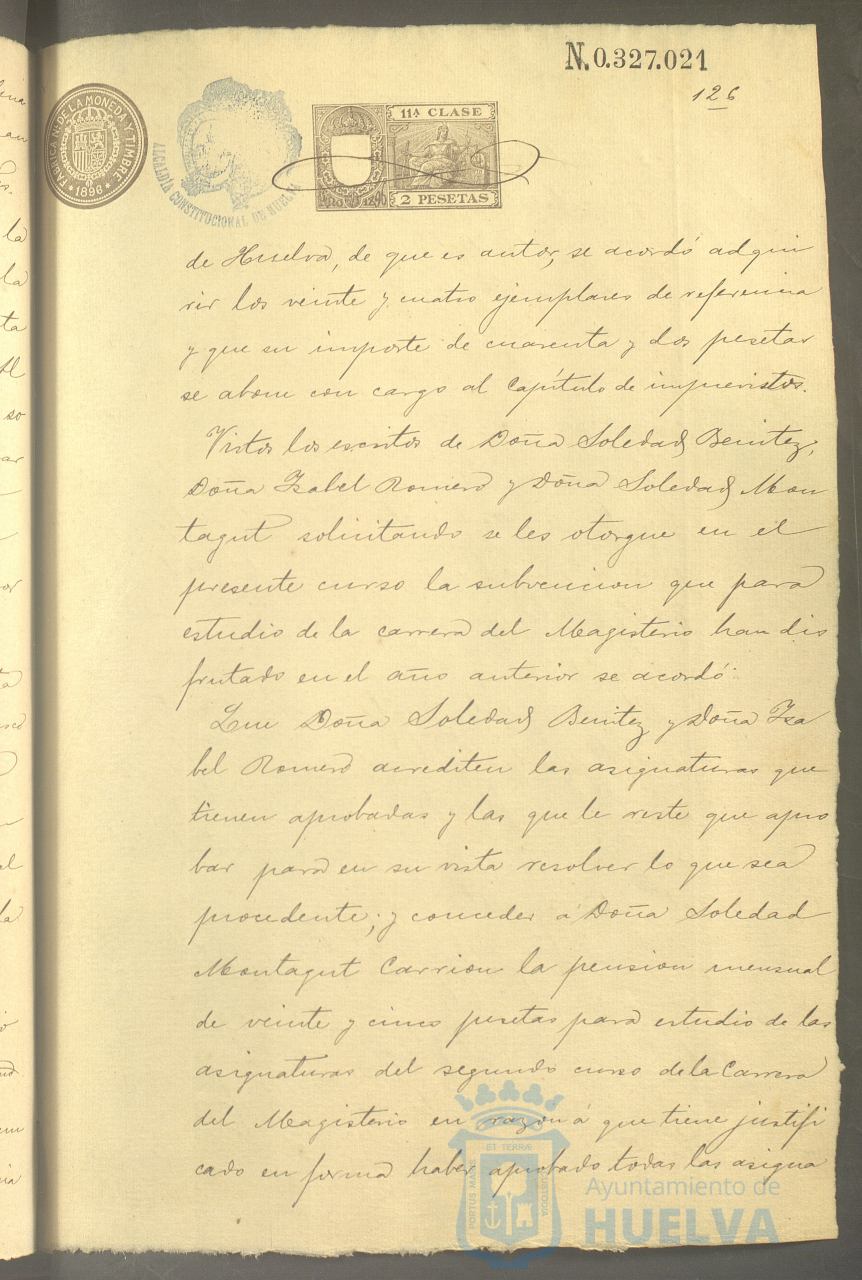 N.0.327.021
126
FABRICA Nl. DE LA MONEDA Y TIMBRE
* 1896 *
ALCALDÍA CONSTITUCIONAL DE HUELVA
11ª CLASE
2 PESETAS
de Huelva, de que es autor, se acordó adqui
rir los veinte y cuatro ejemplares de referencia
y que su importe de cuarenta y dos pesetas
se abone con cargo al Capítulo de imprevistos.
Vistos los escritos de Doña Soledad Benitez,
Doña Isabel Romero y Doña Soledad Mon
tagut solicitando se les otorgue en el
presente curso la subvencion que para
estudio de la carrera del Magisterio han dis
frutado en el año anterior se acordó:
Que Doña Soledad Benitez y Doña Isa
bel Romero acrediten las asignaturas que
tienen aprobadas y las que le reste que apro
bar para en su vista resolver lo que sea
procedente; y conceder á Doña Soledad
Montagut Carrion la pension mensual
de veinte y cinco pesetas para estudio de las
asignaturas del segundo curso de la Carrera
del Magisterio en razon á que tiene justifi
cado en forma haber aprobado todas las asigna
PORTUS MARIS
ET TERRÆ
CUSTODIA
Ayuntamiento de
HUELVA